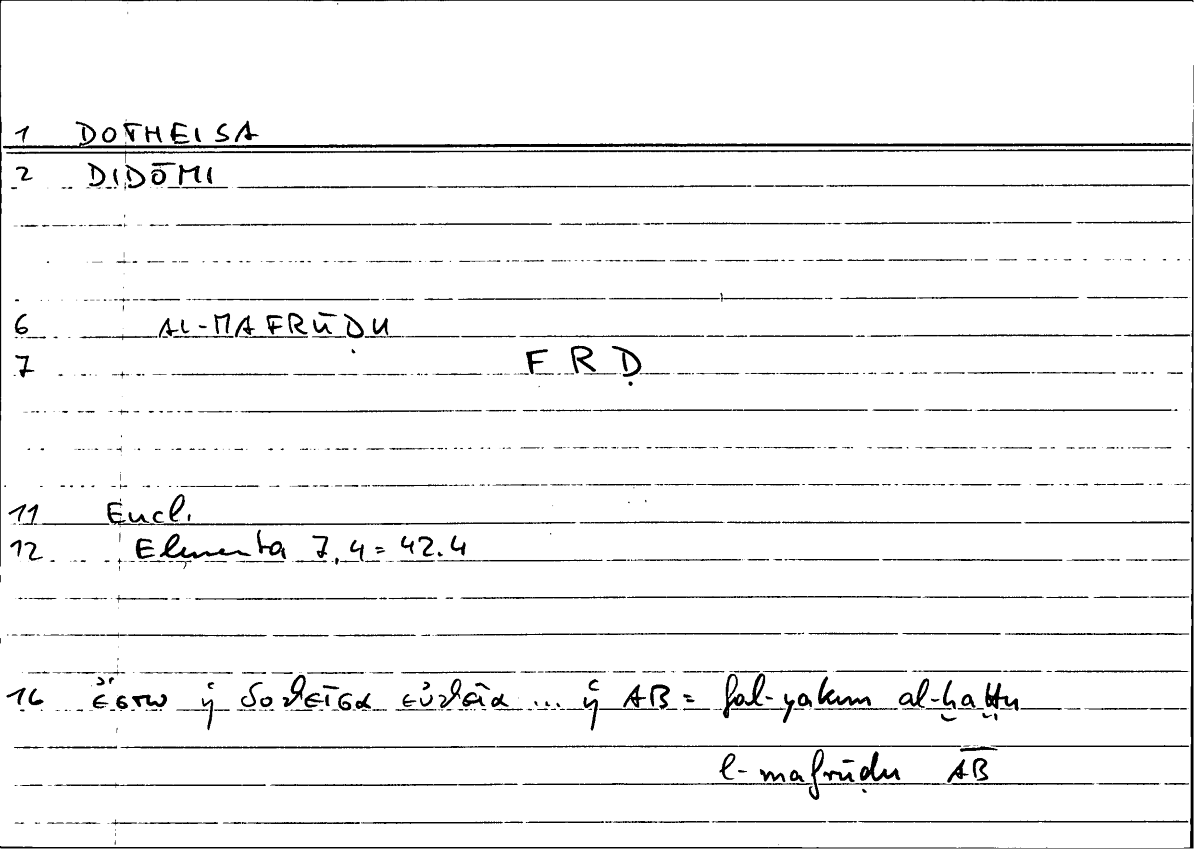 1 DOTHEISA
2 DIDŌMI
6 AL-MAFRŪḌU
7 F R Ḍ
11 Eucl.
12 Elementa 7,4 = 42.4
16 ἔστω ἡ δοθεῖσα εὐθεῖα ... ἡ AB = fal-yakun al-ḫaṭṭu
l-mafrūḍu A̅B̅